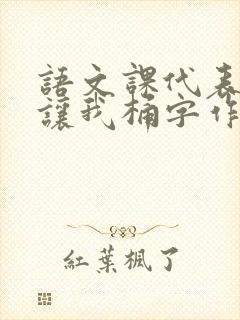 語文課代表
讓我桶字作
紅葉楓了